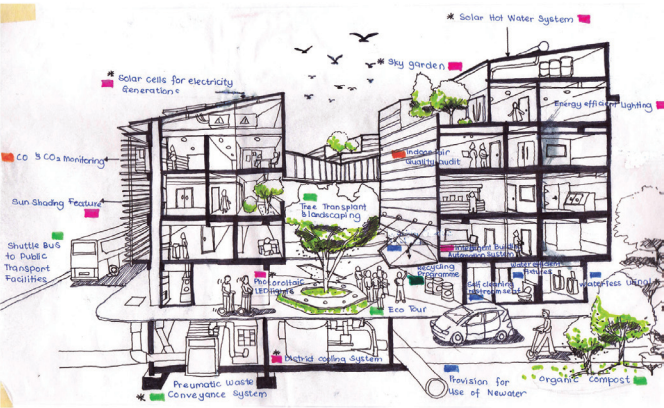 * Solar Hot Water System
* Sky garden
* Solar Cells for electricity
Generations
Energy efficient Lighting
CO & CO2 Monitoring
Indoor Air
Quality audit
Sun Shading Feature
Tree Transplant
& landscaping
Shuttle BUS
to Public
Transport
Facilities
Intelligent Building
Automation System
Recycling
Programme
Water efficient
Fixtures
Photovoltaic
LED lights
Self cleaning
Waterless Urinal
Eco Tour
* District cooling System
Pneumatic Waste
* Conveyance System
Provision for
Use of Newater
Organic Compost